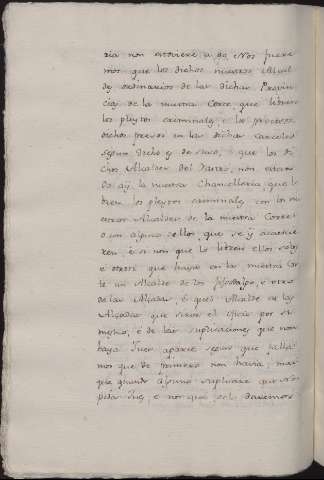 ria non estoviere a do Nos fuere
mos que los dichos nuestros Alcal
des ordinarios de las dichas Provin
cias de la nuestra Corte que libren
los pleytos criminales e los procesos
dichos presos en las dichas carceles
segun dicho es de suso, é que los di
chos Alcaldes del Rastro, non estan
do ay la nuestra Chancelleria que li
bren los pleytos criminales con los nu
estros Alcaldes de la nuestra Corte
o con alguno dellos que se y acaescie
ren, é si non que lo libren ellos solos
e otrosi que haya en la nuestra Cor
te un Alcalde de los fijosdalgo, é otro
de las Alzadas, é quel Alcalde de las
Alzadas que sirva el oficio por si
mesmo, é de las suplicaciones que non
haya Juez aparte segun que falla
mos que de primero non havia, mas
que quando alguno suplicare que Nos
pida Juez e nos que gelo daremos